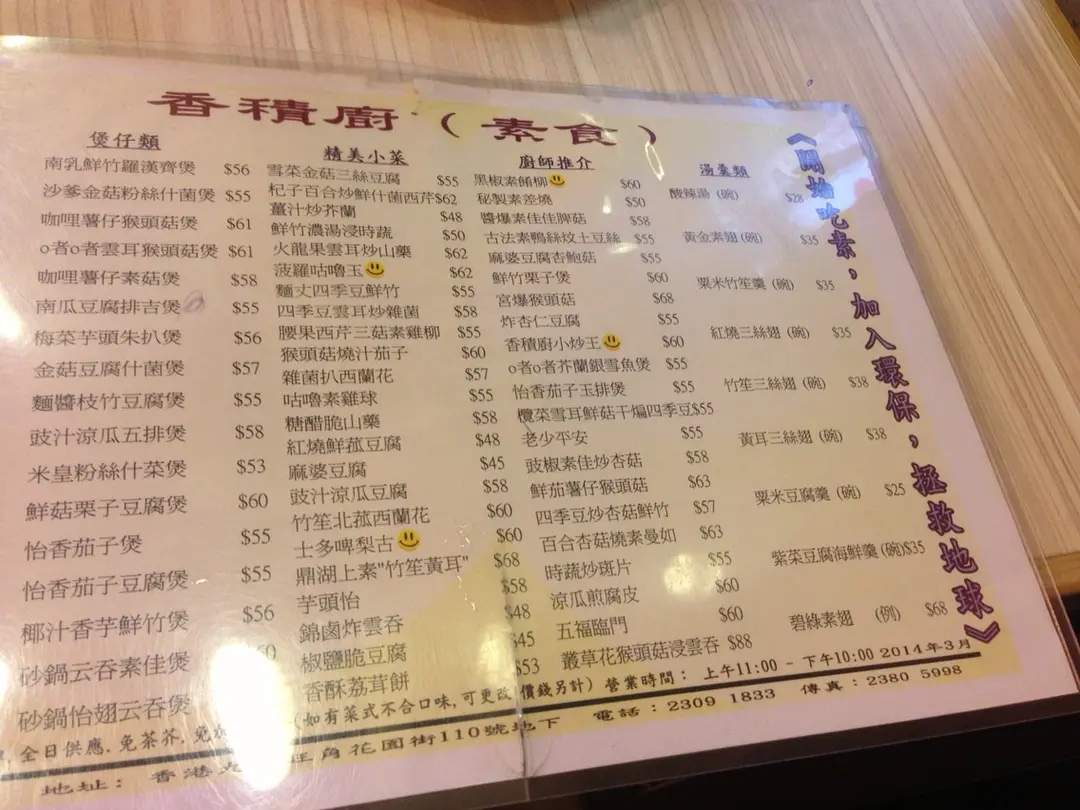 香積廚（素食）
煲仔類
南乳鮮竹羅漢齊煲 $56
沙爹金菇粉絲什菌煲 $55
咖哩薯仔猴頭菇煲 $61
o者o者雲耳猴頭菇煲 $61
咖哩薯仔素菇煲 $58
南瓜豆腐排吉煲 $55
梅菜芋頭朱扒煲 $56
金菇豆腐什菌煲 $57
麵醬枝竹豆腐煲 $55
豉汁涼瓜五排煲 $58
米皇粉絲什菜煲 $53
鮮菇栗子豆腐煲 $60
怡香茄子煲 $55
怡香茄子豆腐煲 $55
椰汁香芋鮮竹煲 $56
砂鍋云吞素佳煲
砂鍋怡翅云吞煲
精美小菜
雪菜金菇三絲豆腐 $55
杞子百合炒鮮什菌西芹 $62
薑汁炒芥蘭 $48
鮮竹濃湯浸時蔬 $50
火龍果雲耳炒山藥 $62
菠羅咕嚕玉 $62
麵丈四季豆鮮竹 $55
四季豆雲耳炒雜菌 $58
腰果西芹三菇素雞柳 $55
猴頭菇燒汁茄子 $60
雜菌扒西蘭花 $57
咕嚕素雞球 $55
糖醋脆山藥 $58
紅燒鮮菰豆腐 $48
麻婆豆腐 $45
豉汁涼瓜豆腐 $58
竹笙北菰西蘭花 $60
士多啤梨古 $60
鼎湖上素"竹笙黃耳" $68
芋頭怡 $58
錦鹵炸雲吞 $48
椒鹽脆豆腐 $45
香酥荔茸餅 $53
廚師推介
黑椒素餚柳 $60
秘製素差燒 $50
醬爆素佳佳脾菇 $58
古法素鴨絲炆土豆絲 $55
麻婆豆腐杏鮑菇 $55
鮮竹栗子煲 $60
宮爆猴頭菇 $68
炸杏仁豆腐 $55
香積廚小炒王 $60
o者o者芥蘭銀雪魚煲 $55
怡香茄子玉排煲 $55
欖菜雪耳鮮菇干煸四季豆 $55
老少平安 $55
豉椒素佳炒杏菇 $58
鮮茄薯仔猴頭菇 $63
四季豆炒杏菇鮮竹 $57
百合杏菇燒素曼如 $63
時蔬炒斑片 $55
涼瓜煎腐皮 $60
五福臨門 $60
叢草花猴頭菇浸雲吞 $88
湯羹類
酸辣湯（碗） $28
黃金素翅（碗） $35
粟米竹笙羹（碗） $35
紅燒三絲翅（碗） $35
竹笙三絲翅（碗） $38
黃耳三絲翅（碗） $38
粟米豆腐羹（碗） $25
紫菜豆腐海鮮羹（碗） $35
碧綠素翅（例） $68
《開始吃素，加入環保，拯救地球》
全日供應. 免茶芥. 免
(如有菜式不合口味,可更改 價錢另計) 營業時間：上午11:00 - 下午10:00 2014年3月
地址：香港 旺角花園街110號地下 電話：2309 1833 傳真：2380 5998